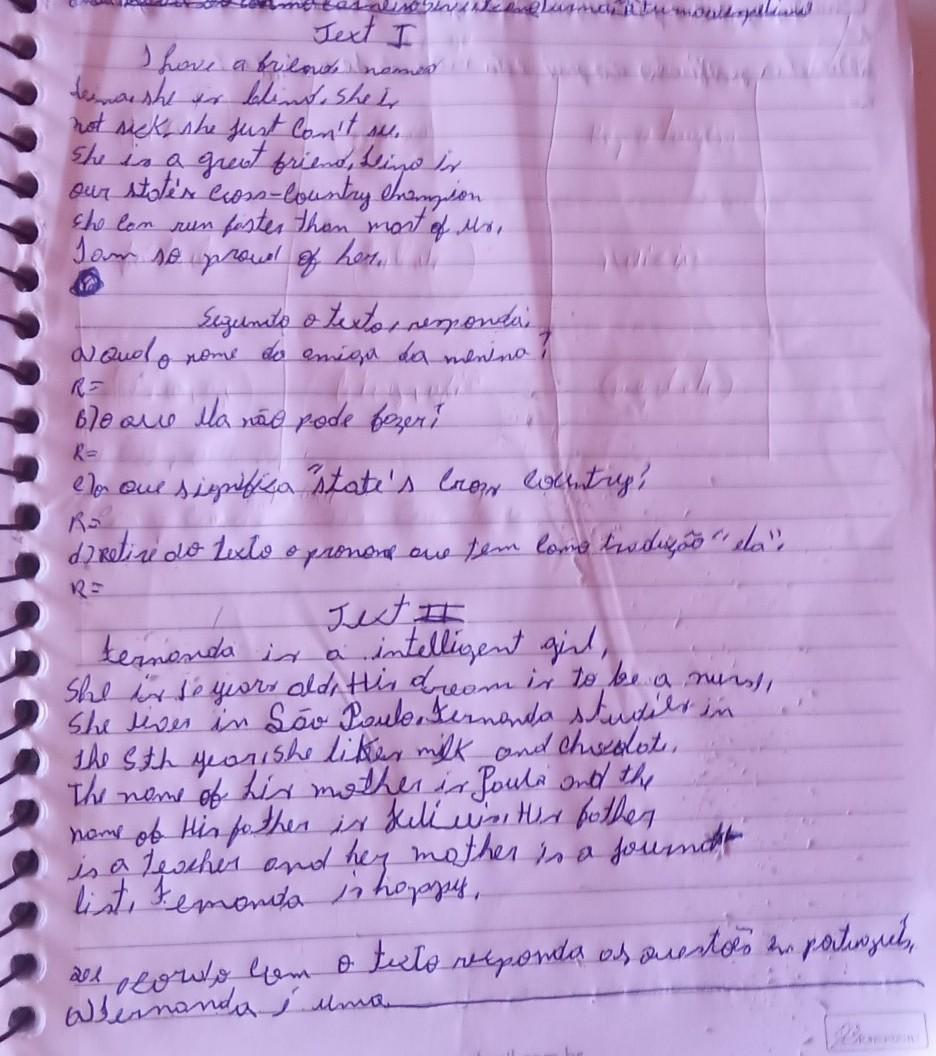 Text I
I have a friend named
she is blind. She is
not sick, she just can't see.
She is a great friend. is
our state's cross-country champion
she can run faster than most of us,
I am so proud of her.
Segundo o texto, responda:
a) Qual o nome da amiga da menina?
R=
b) O que ela não pode fazer?
R=
c) o que significa "state's cross country?
R=
d) Retire do texto o pronome que tem como tradução "ela".
R=
Text II
Fernanda is a intelligent girl,
She is 10 years old, His dream is to be a nurse,
She lives in São Paulo. Fernanda studies in
the 5th year, she likes milk and chocolate.
The name of his mother is Paula and the
name of His father is His father
is a teacher and her mother is a journa
list, Fernanda is happy.
acordo com o texto responda as questões em português,
a) Fernanda é uma